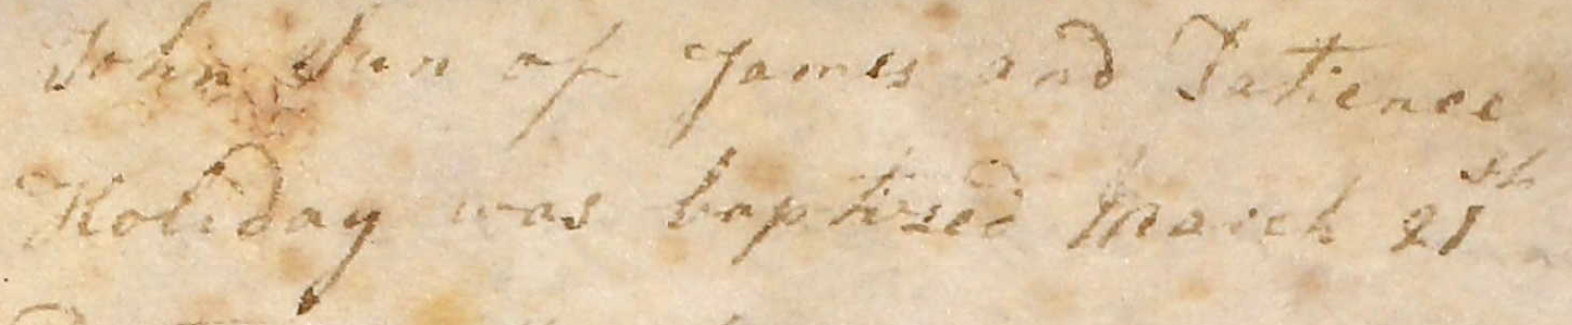 John Sun of James and Patience
Holiday was baptised March 21st